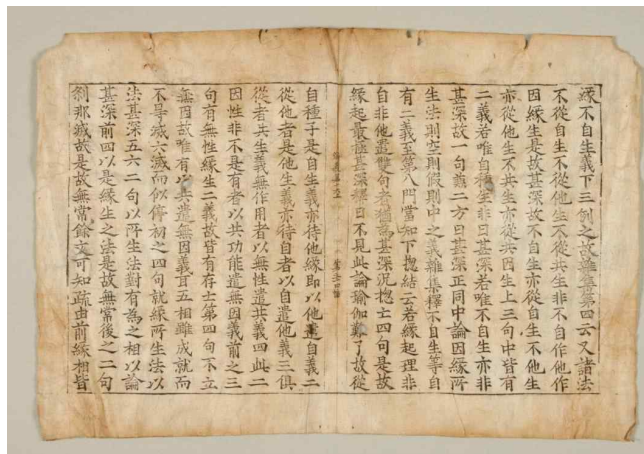 緣不自生義下三例之故雖華第四云又諸法
不從自生不從他生不從共生非不自作他作
因緣生是故甚深故不自生亦從自生不他生
亦從他生不共生亦從共因生上三句中皆有
二義若唯自種生非曰甚深若唯不自生亦非
甚深故一句兼二方曰甚深正同中論因緣所
生法則空則假則中之義雜集釋不自生等自
有二義至第八門當知下揔結云若緣起理非
自非他遣雙句者猶為甚深況揔亡四句是故
緣起最極甚深釋曰不見此論瑜伽難了故從
自種子是自生義亦待他緣即以他遣自義二
從他者是他生義亦待自者以自遣他義三俱
從者共生義無作用者以無性遣共義四此二
因性非不是有者以共功能遣無因義前之三
句有無性緣生二義故皆有存士第四句不立
無因故唯有以共遣無因義耳五相雖成就而
不早滅六滅而似停初之四句就緣所生法以
法甚深五六二句以所生法對有為之相以論
甚深前四以是緣生之法是故無常後之二句
刹那滅故是故無常餘文可知疏由前緣相皆